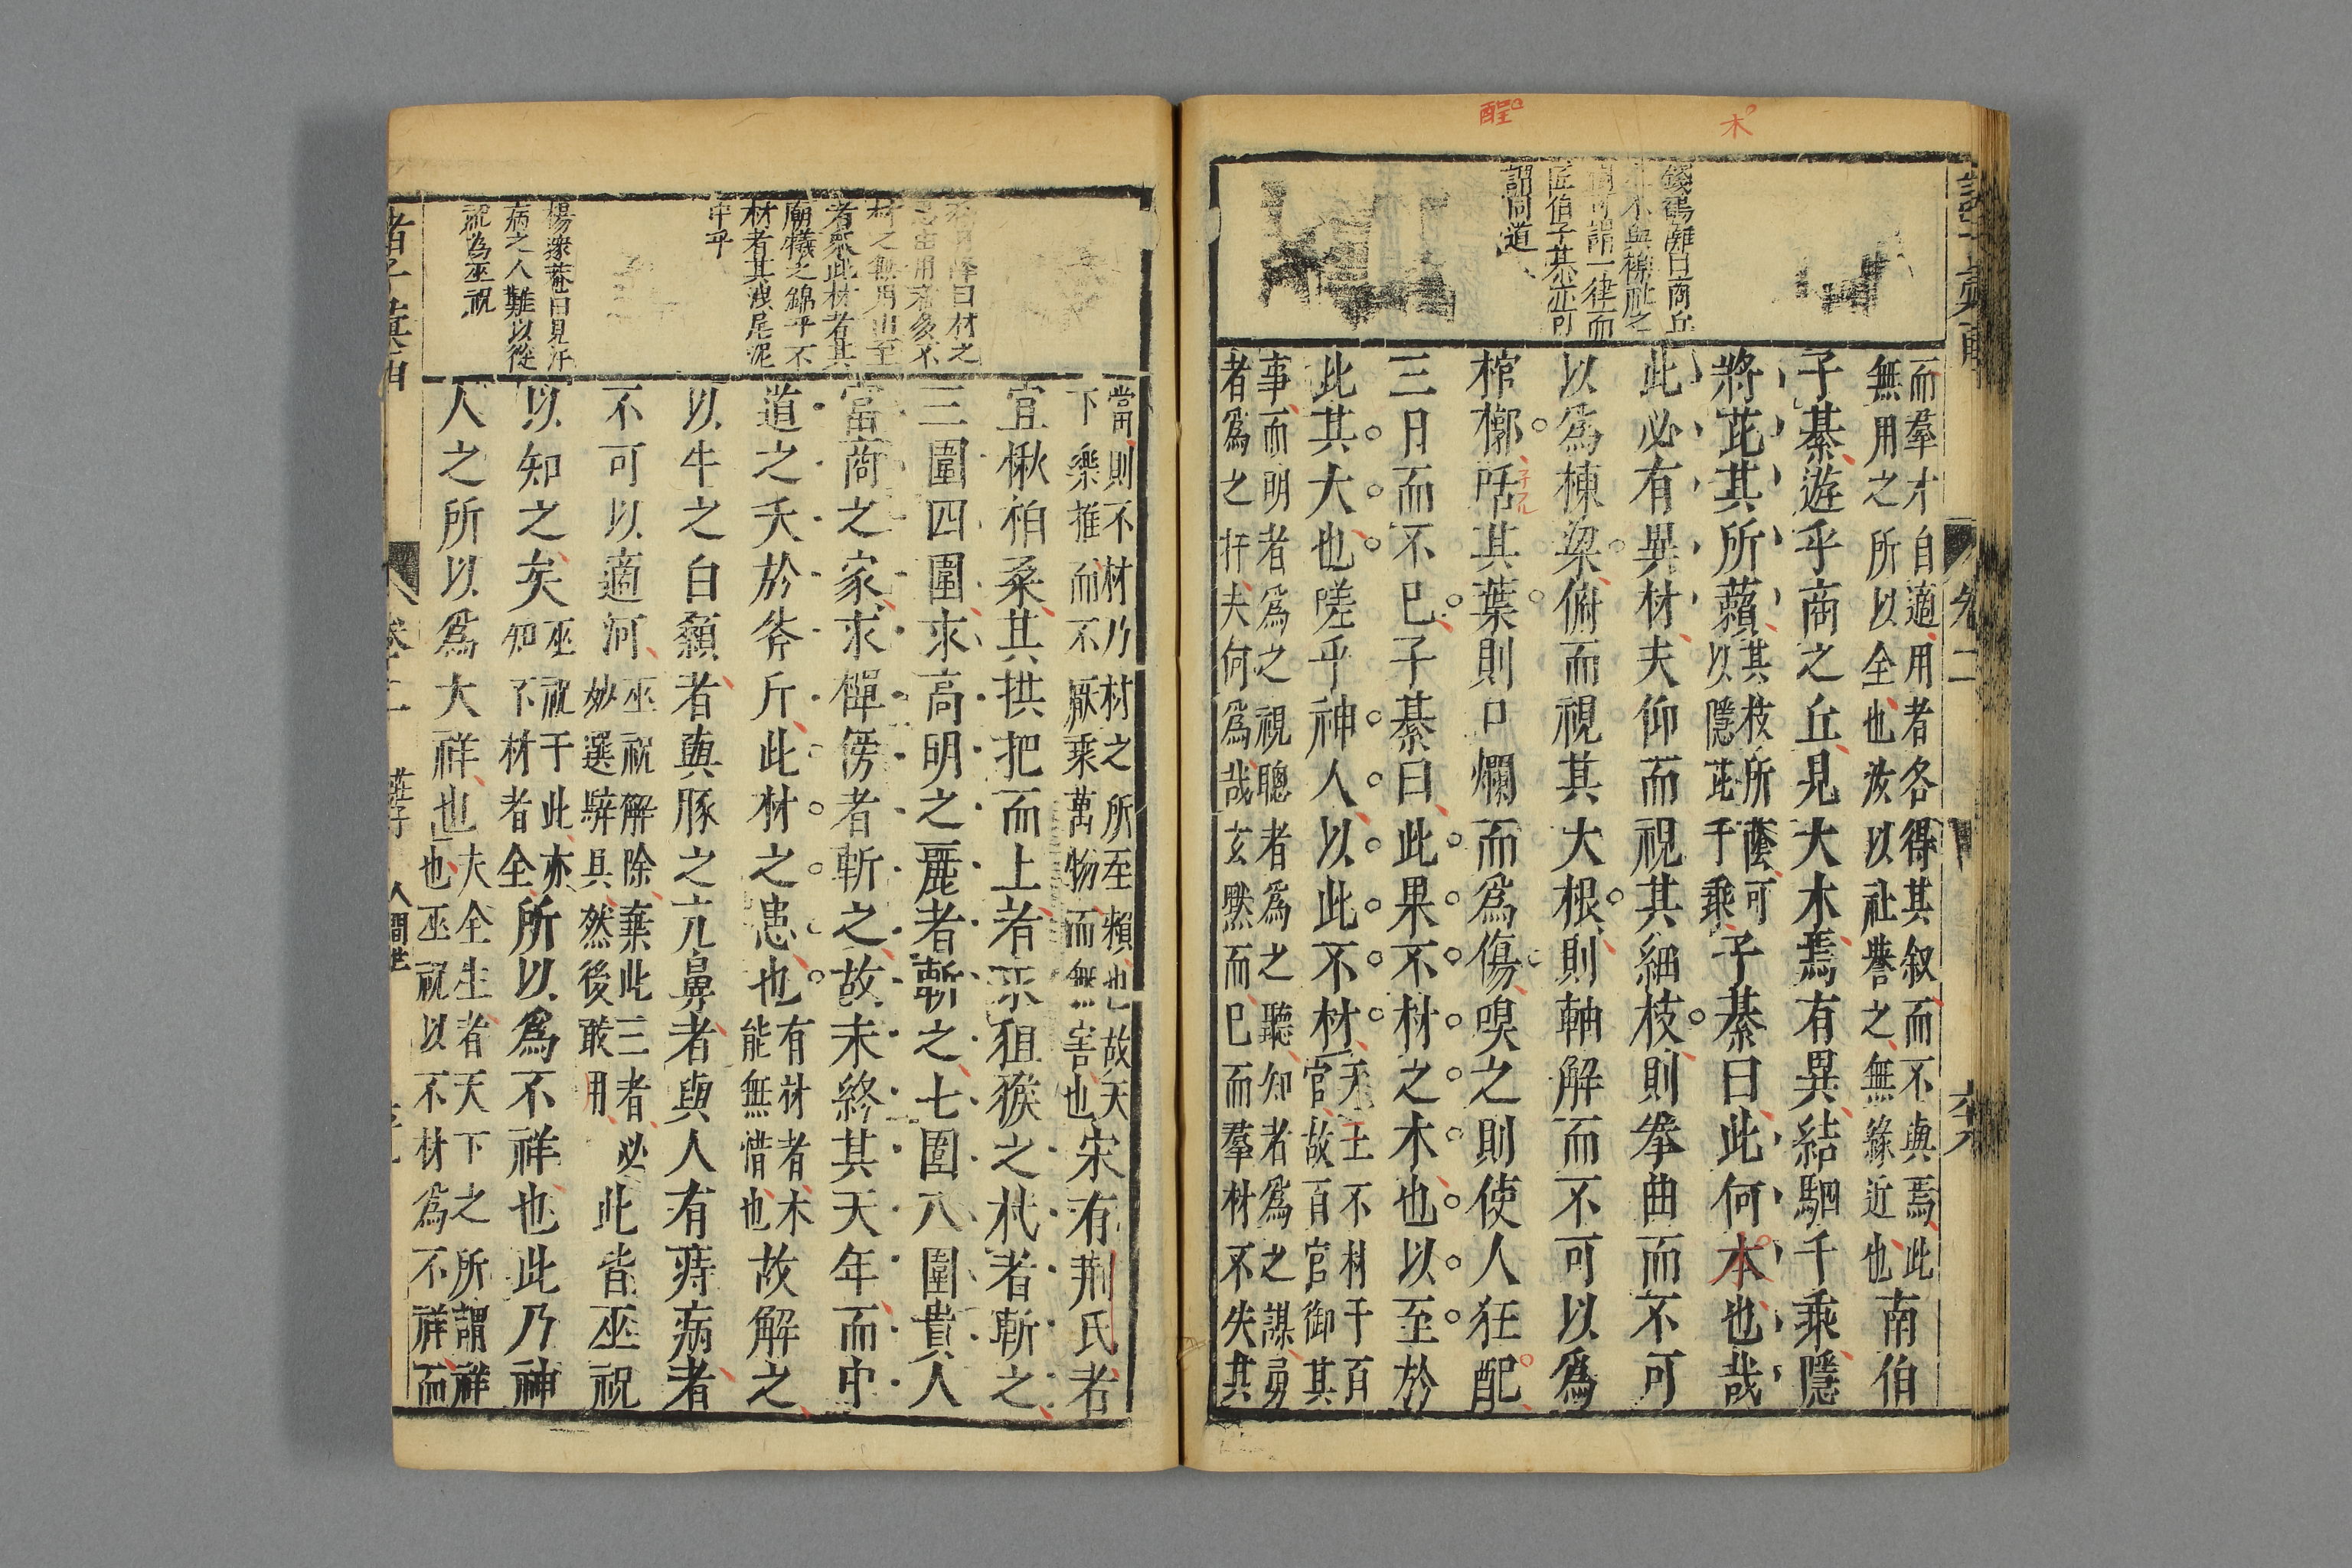 醒
木
錢鶴灘曰商丘
之木與櫟社之
樹可謂一律而
匠伯子綦亦可
謂同道
而羣才自適用者各得其叙而不與焉此
無用之所以全也汝以社譽之無緣近也南伯
子綦遊乎商之丘見大木焉有異結駟千乘隱
將芘其所藾其枝所蔭可
以隱芘千乘子綦曰此何本也哉
此必有異材夫仰而視其細枝則拳曲而不可
以爲棟梁俯而視其大根則軸解而不可以爲
棺槨咶其葉則口爛而爲傷嗅之則使人狂酲
三日而不已子綦曰此果不材之木也以至於
此其大也嗟乎神人以此不材天王不材于百
官故百官御其
事而明者爲之視聰者爲之聽知者爲之謀勇
者爲之扞夫何爲哉玄默而已而羣材不失其
卷二
材之
材之無用山至
者求此材者其
廟犧之錦乎不
材者其洩尾泥
中乎
楊溁菴曰見汙
病之人難以從
祝爲巫祝
當用則不材乃材之所至賴也故天
下樂推而不厭乘萬物而無害也宋有荆氏者
宜楸柏桑其拱把而上者求狙猴之杙者斬之
三圍四圍求高明之麗者斬之七圍八圍貴人
富商之家求樿傍者斬之故未終其天年而中
道之夭於斧斤此材之患也有材者
能無惜也木故解之
以牛之白顙者與豚之亢鼻者與人有痔病者
不可以適河巫祝解除棄此三者必
妙選騂具然後敢用此皆巫祝
以知之矣巫祝于此亦
知不材者全所以爲不祥也此乃神
人之所以爲大祥也夫全生者天下之所謂祥
也巫祝以不材爲不祥而
卷二 莊子 人間世